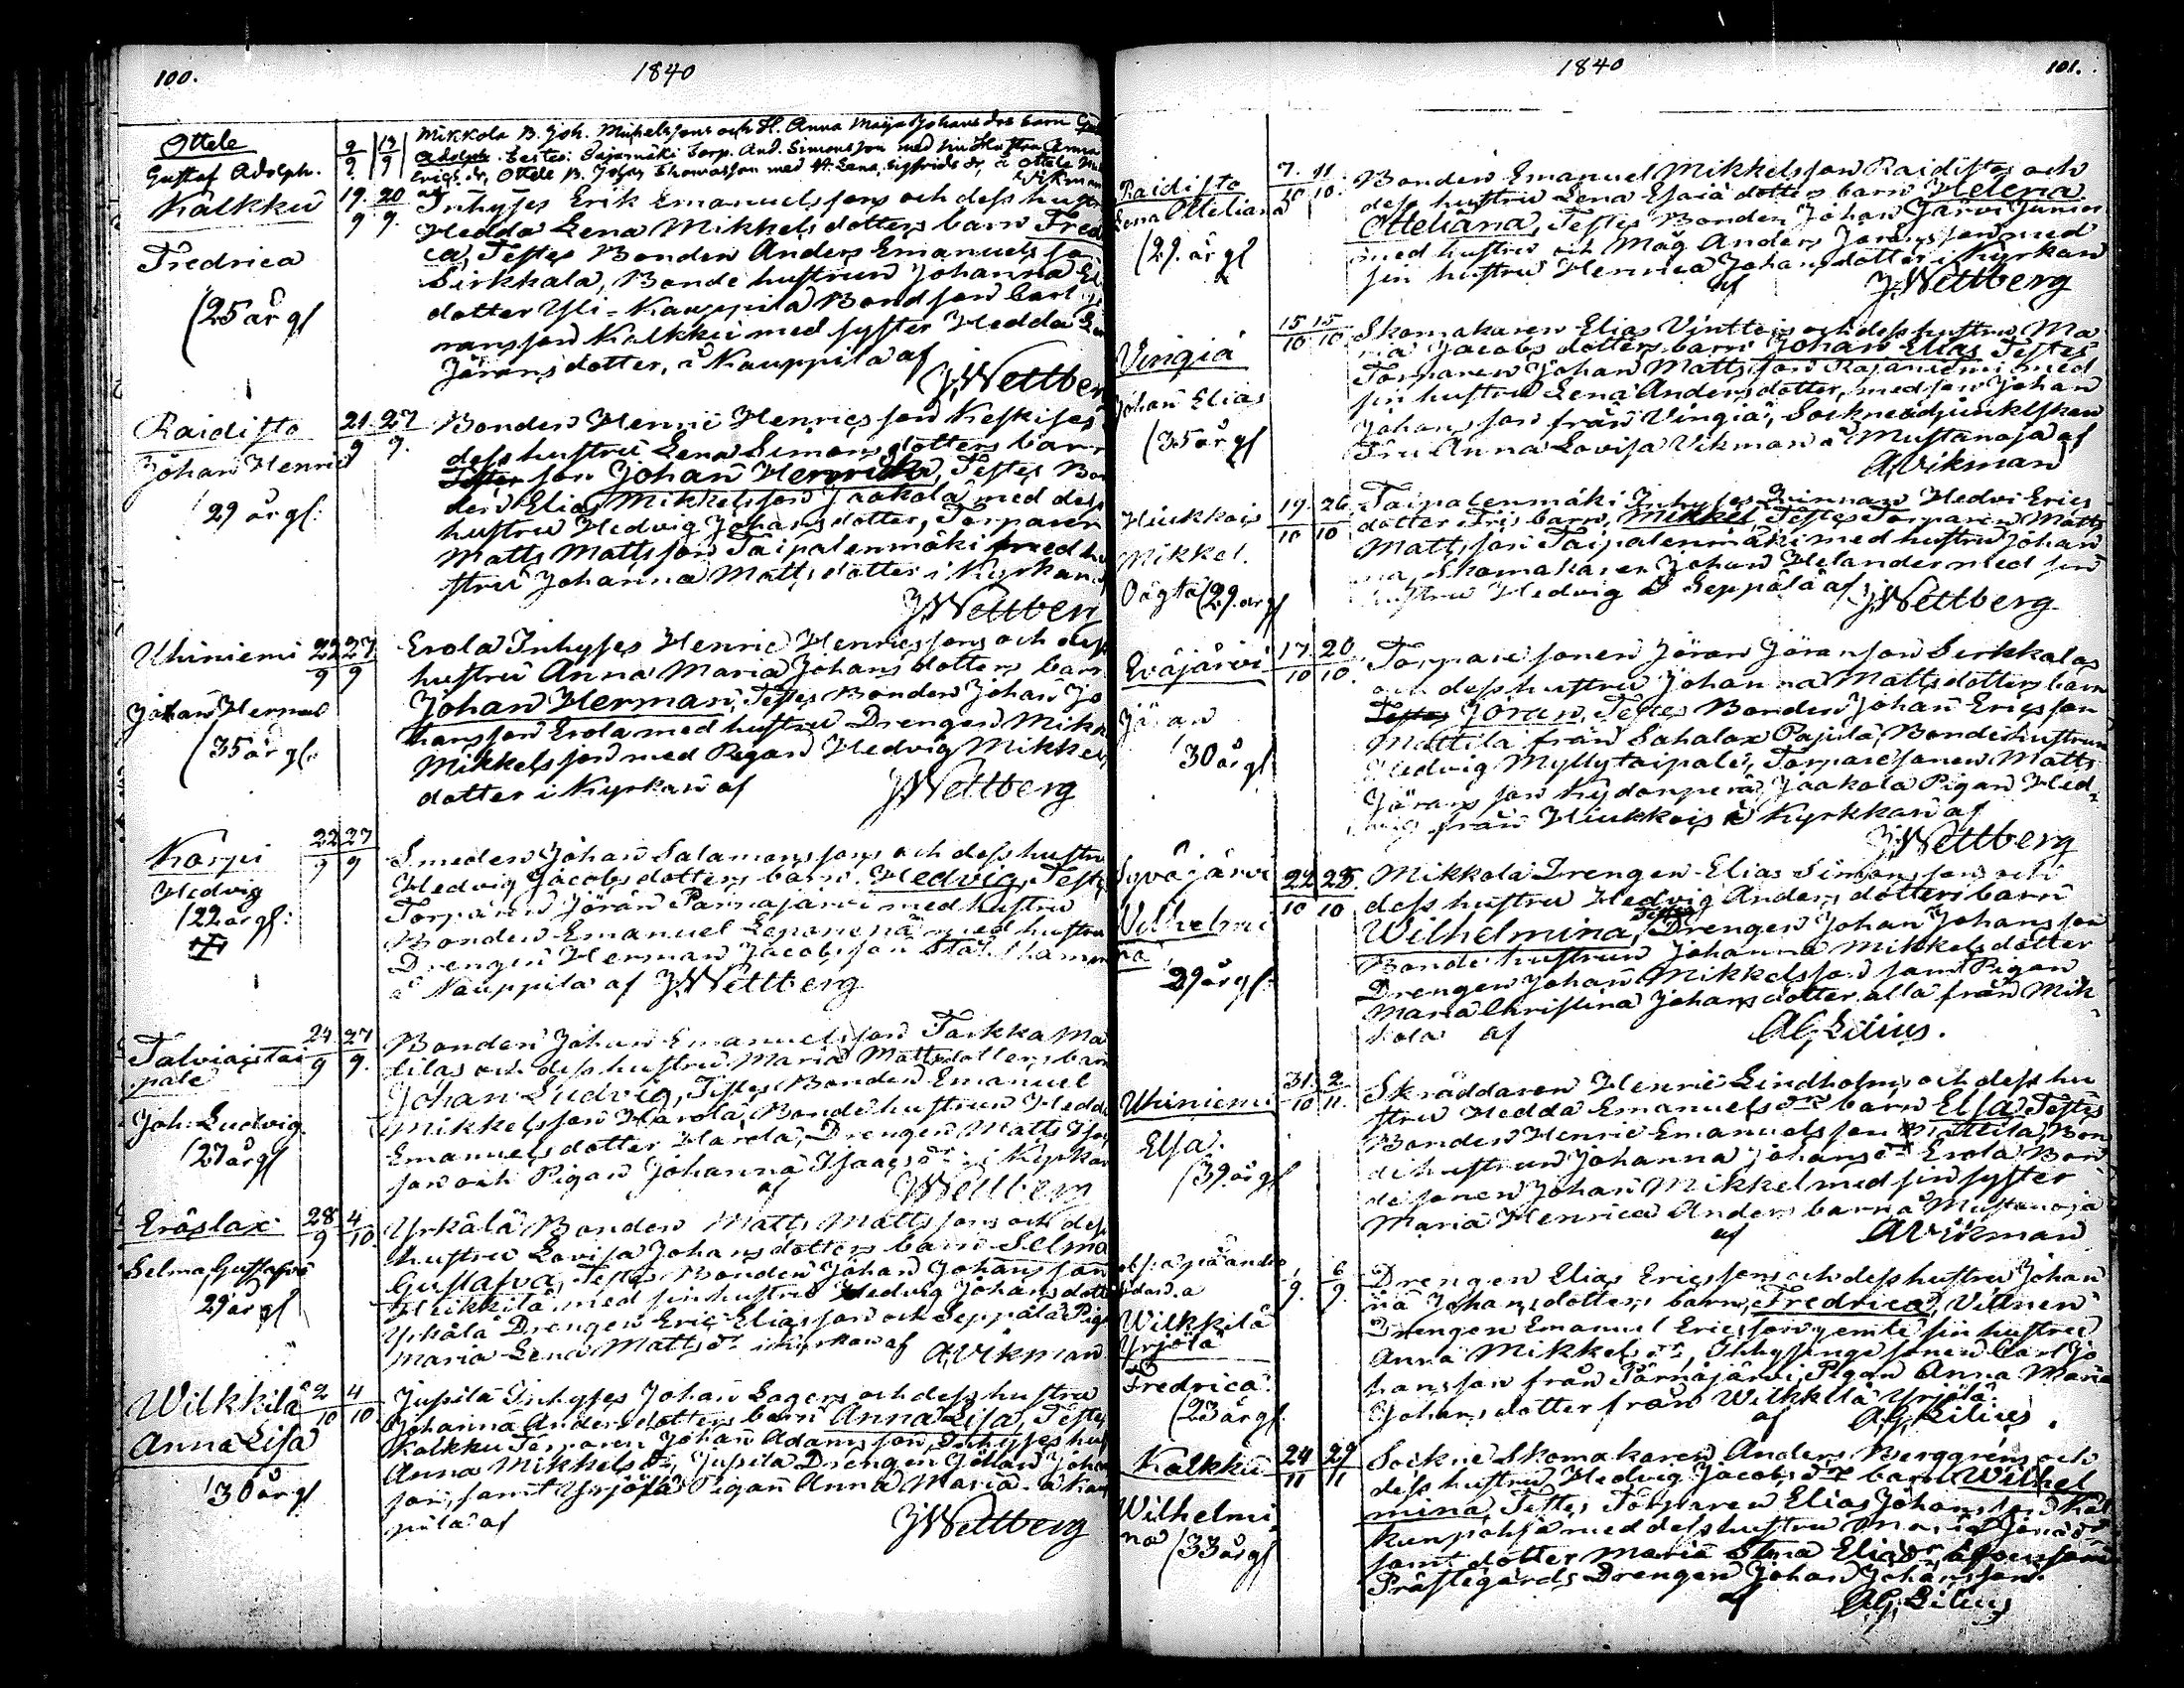 100.
1840
Ottele
Gustaf Adolph.
9 13
9 9
Mikkola B. Joh. Michelssons och H. Anna Maija Johans drs barn
Adolph. Testes: Torp. And. Simonsson med sin Hustru Anna
Erics dr, Ottele B. Johan Thomasson med H. Lena Sigfrids dr, a Ottele
af Vikman
Kalkku
19. 20
9 9.
Fredrica
(25 år gl
Inhyses Erik Emanuelssons och dess hustru
Hedda Lena Mikkelsdotters barn Fred
ca, Testes Bonden Anders Emanuels son
Sirkkala, Bonde hustrun Johanna
dotter Yli-Kauppila Bondson Carl
ransson Kalkku med syster Hedda
Jöransdotter, å Kauppila af
J Wettberg
Raidisto
21. 27
9 9.
Johan Henric
29 år gl:
Bonden Henric Henrics son Keskises
dess hustru Lena Simonsdotters barn
Testes son Johan Henrick, Testes Bon
den Elias Mikkelsson Jaakola med dess
hustru Hedvig Johansdotter, Torparen
Matts Mattsson Taipalenmäki med hu
stru Johanna Mattsdotter i Kyrkan
J Wettberg
Uhiniemi
22 27
9 9
Johan Herman
(35 år gl:
Erola Inhyses Henric Henricssons och dess
hustru Anna Maria Johansdotters barn
Johan Herman, Testes Bonden Johan Jo
hansson Erola med hustru Drengen Mikkel
Mikkelsson med Pigan Hedvig Mikkels
dotter i Kyrkan af
J Wettberg
Korpi
22 27
9 9
Hedvig
(22 år gl:
Smeden Johan Salamonssons och dess hustru
Hedvig Jacobsdotters barn Hedvig, Testes
Torparen Jöran Parnajärvi med hustru
Bonden Emanuel med hustru
Drengen Herman Jacobsson
å Kauppila af J Wettberg
Talviaistai
pale
24. 27
9 9.
Joh: Ludvig
(27 år gl
Bonden Johan Emanuelsson Tarkka Ma
tilas och dess hustru Maria Mattsdotters barn
Johan Ludvig, Testes Bonden Emanuel
Mikkelsson Harola, Bonde hustrun Hedda
Emanuelsdotter Harola, Drengen Matts
son och Pigan Johanna Isaacs dr i Kyrkan
af J Wettberg
Eräslax
28 4
9 10.
Selma Gustafva
29 år gl
Yrkälä Bonden Matts Mattssons och dess
hustru Lovisa Johansdotters barn Selma
Gustafva, Testes Bonden Johan Johansson
Heikkilä med sin hustru Hedvig Johansdotter
Yrkälä Drengen Eric Eliasson och Seppälä Pigan
Maria Lena Matts dr i kyrkan af A Vikman
Wilkkilä
2 4
10 10
Anna Lisa
30 år gl
Jussila Inhyses Johan Lagers och dess hustru
Johanna Andersdotters barn Anna Lisa, Testes
Kalkku Torparen Johan Adamsson, Inhyses hustru
Anna Mikkels dr, Jussila Drengen Johan Johan
son, samt Yrjölä Pigan Anna Maria å Kaup
pila af
J Wettberg
1840
101.
Raidisto
7. 11
10 10.
Lena Otteliana
(29. år gl
Bonden Emanuel Mikkelsson Raidisto och
dess hustru Lena Esaiæ dotters barn Helena
Otteliana, Testes Bonden Johan Järvi Junior
med hustru och Måg Anders Jöransson med
sin hustru Henrica Johansdotter i Kyrkan
af J Wettberg
Vingiä
15 15
10 10
Johan Elias
(35 år gl
Skomakaren Elias Vinttois och dess hustru Ma
ria Jacobsdotters barn Johan Elias Testes
Torparen Johan Mattsson Rajaniemi med
sin hustru Lena Andersdotter, med son Johan
Johansson från Vingiä, Sockneadjunkiskan
Fru Anna Lovisa Vikman å Mustanoja af
A. Vikman
Hiukkois
19. 26
10 10
Mikkel.
Oägta (29. år gl
Taipalenmäki Inhyses Qvinnan Hedvi Erics
dotter Fris barn, Mikkel, Testes Torparen Matts
Mattsson Taipalenmäki med hustru Johan
na, Skomakaren Johan Helander med sin
hustru Hedvig å Seppälä af J Wettberg
Eväjärvi
17. 20
10 10.
Jöran
30 år gl
Torpare sonen Jöran Jöransson Sirkkalas
och dess hustru Johanna Mattsdotters barn
Testes Jöran, Testes Bonden Johan Ericsson
Mattila från Sahalax Pajula, Bondehustrun
Hedvig Myllytaipale, Torparesonen Matts
Jöransson Kydönperä, Jaakola Pigan Hed
vig från Hiukkois i Kyrkkan af
J Wettberg
Syväjärvi
22 25.
10 10
Wilhelmi
na
29 år gl:
Mikkola Drengen Elias Simonssons och
dess hustru Hedvig Andersdotters barn
Wilhelmina, Testes Drengen Johan Johansson
Bonde hustrun Johanna Mikkelsdotter
Drengen Johan Mikkelsson samt Pigan
Maria Christina Johansdotter alla från Mik
kola af AG Lilius.
Uhiniemi
31. 2
10 11.
Elsa.
(39. år gl
Skräddaren Henric Lindholms och dess hu
stru Hedda Emanuels drs barn Elsa, Testes
Bonden Henric Emanuelsson Mattila, Bon
de hustrun Johanna Johans dr Erola, Bon
de sonen Johan Mikkel med sin syster
Maria Henrica Anders barn å Mustanoja
af A Vikman
6
9. 9.
Wilkkilä
Yrjölä
Fredrica.
(23 år gl:
Drengen Elias Ericssons och dess hustru Johan
na Johansdotters barn, Fredrica, Vittnen
Drengen Emanuel Ericsson jemte sin hustru
Anna Mikkels dr, Inhysinge sonen Carl Jo
hansson från Pärnäjärvi, Pigan Anna Maria
Johansdotter från Wilkkilä Yrjölä.
af AG Lilius.
Kalkku
24 29
11 11
Wilhelmi
na (33 år gl
Sockne Skomakaren Anders Berggréns och
dess hustru Hedvig Jacobs drs barn Wilhel
mina, Testes Torparen Elias Johansson Kal
kunpohja med dess hustru Maria
samt dotter Maria Stina Elias dr
Prästegårds Drengen Johan Johansson.
af AG Lilius